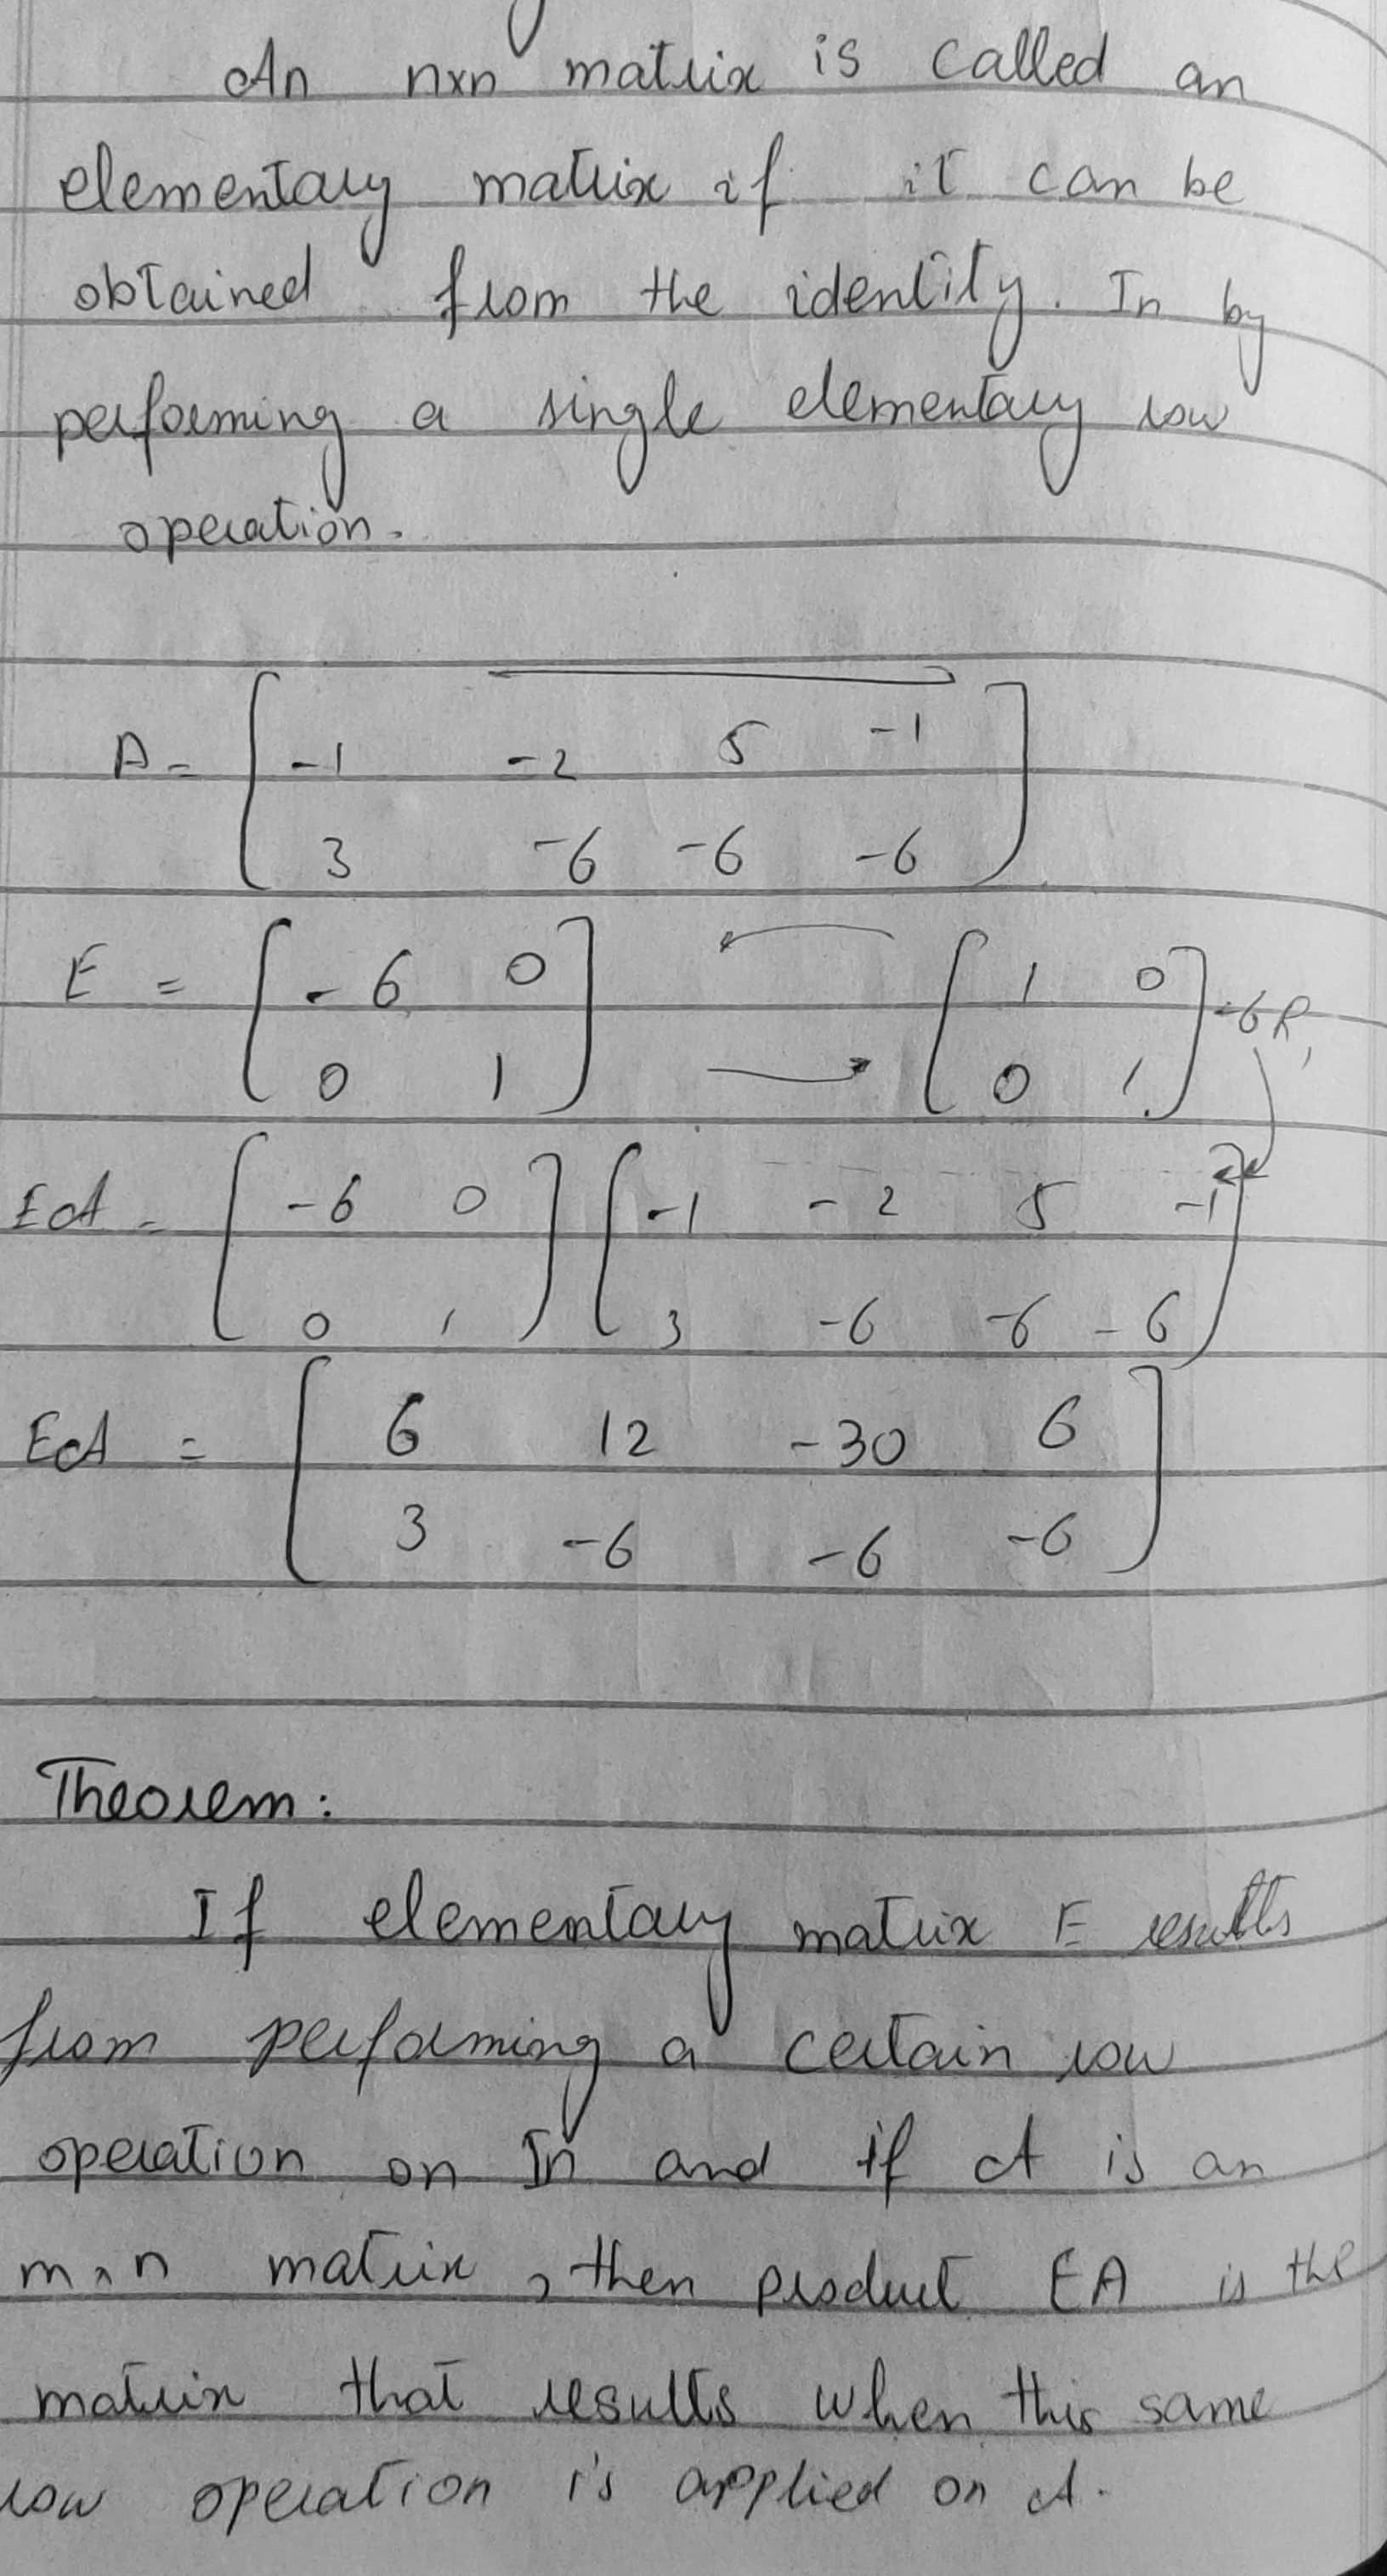 An nxn matrix is called an
elementary matrix if it can be
obtained from the identity. In by
performing a single elementary row
operation.
A = [ -1 -2 5 -1
3 -6 -6 -6 ]
E = [ -6 0 [ 1 0 -6R1
0 1 ] 0 1 ]
EA = [ -6 0 [ -1 -2 5 -1
0 1 ] 3 -6 -6 -6 ]
EA = [ 6 12 -30 6
3 -6 -6 -6 ]
Theorem:
If elementary matrix E results
from performing a certain row
operation on In and if A is an
m×n matrix, then product EA is the
matrix that results when this same
row operation is applied on A.